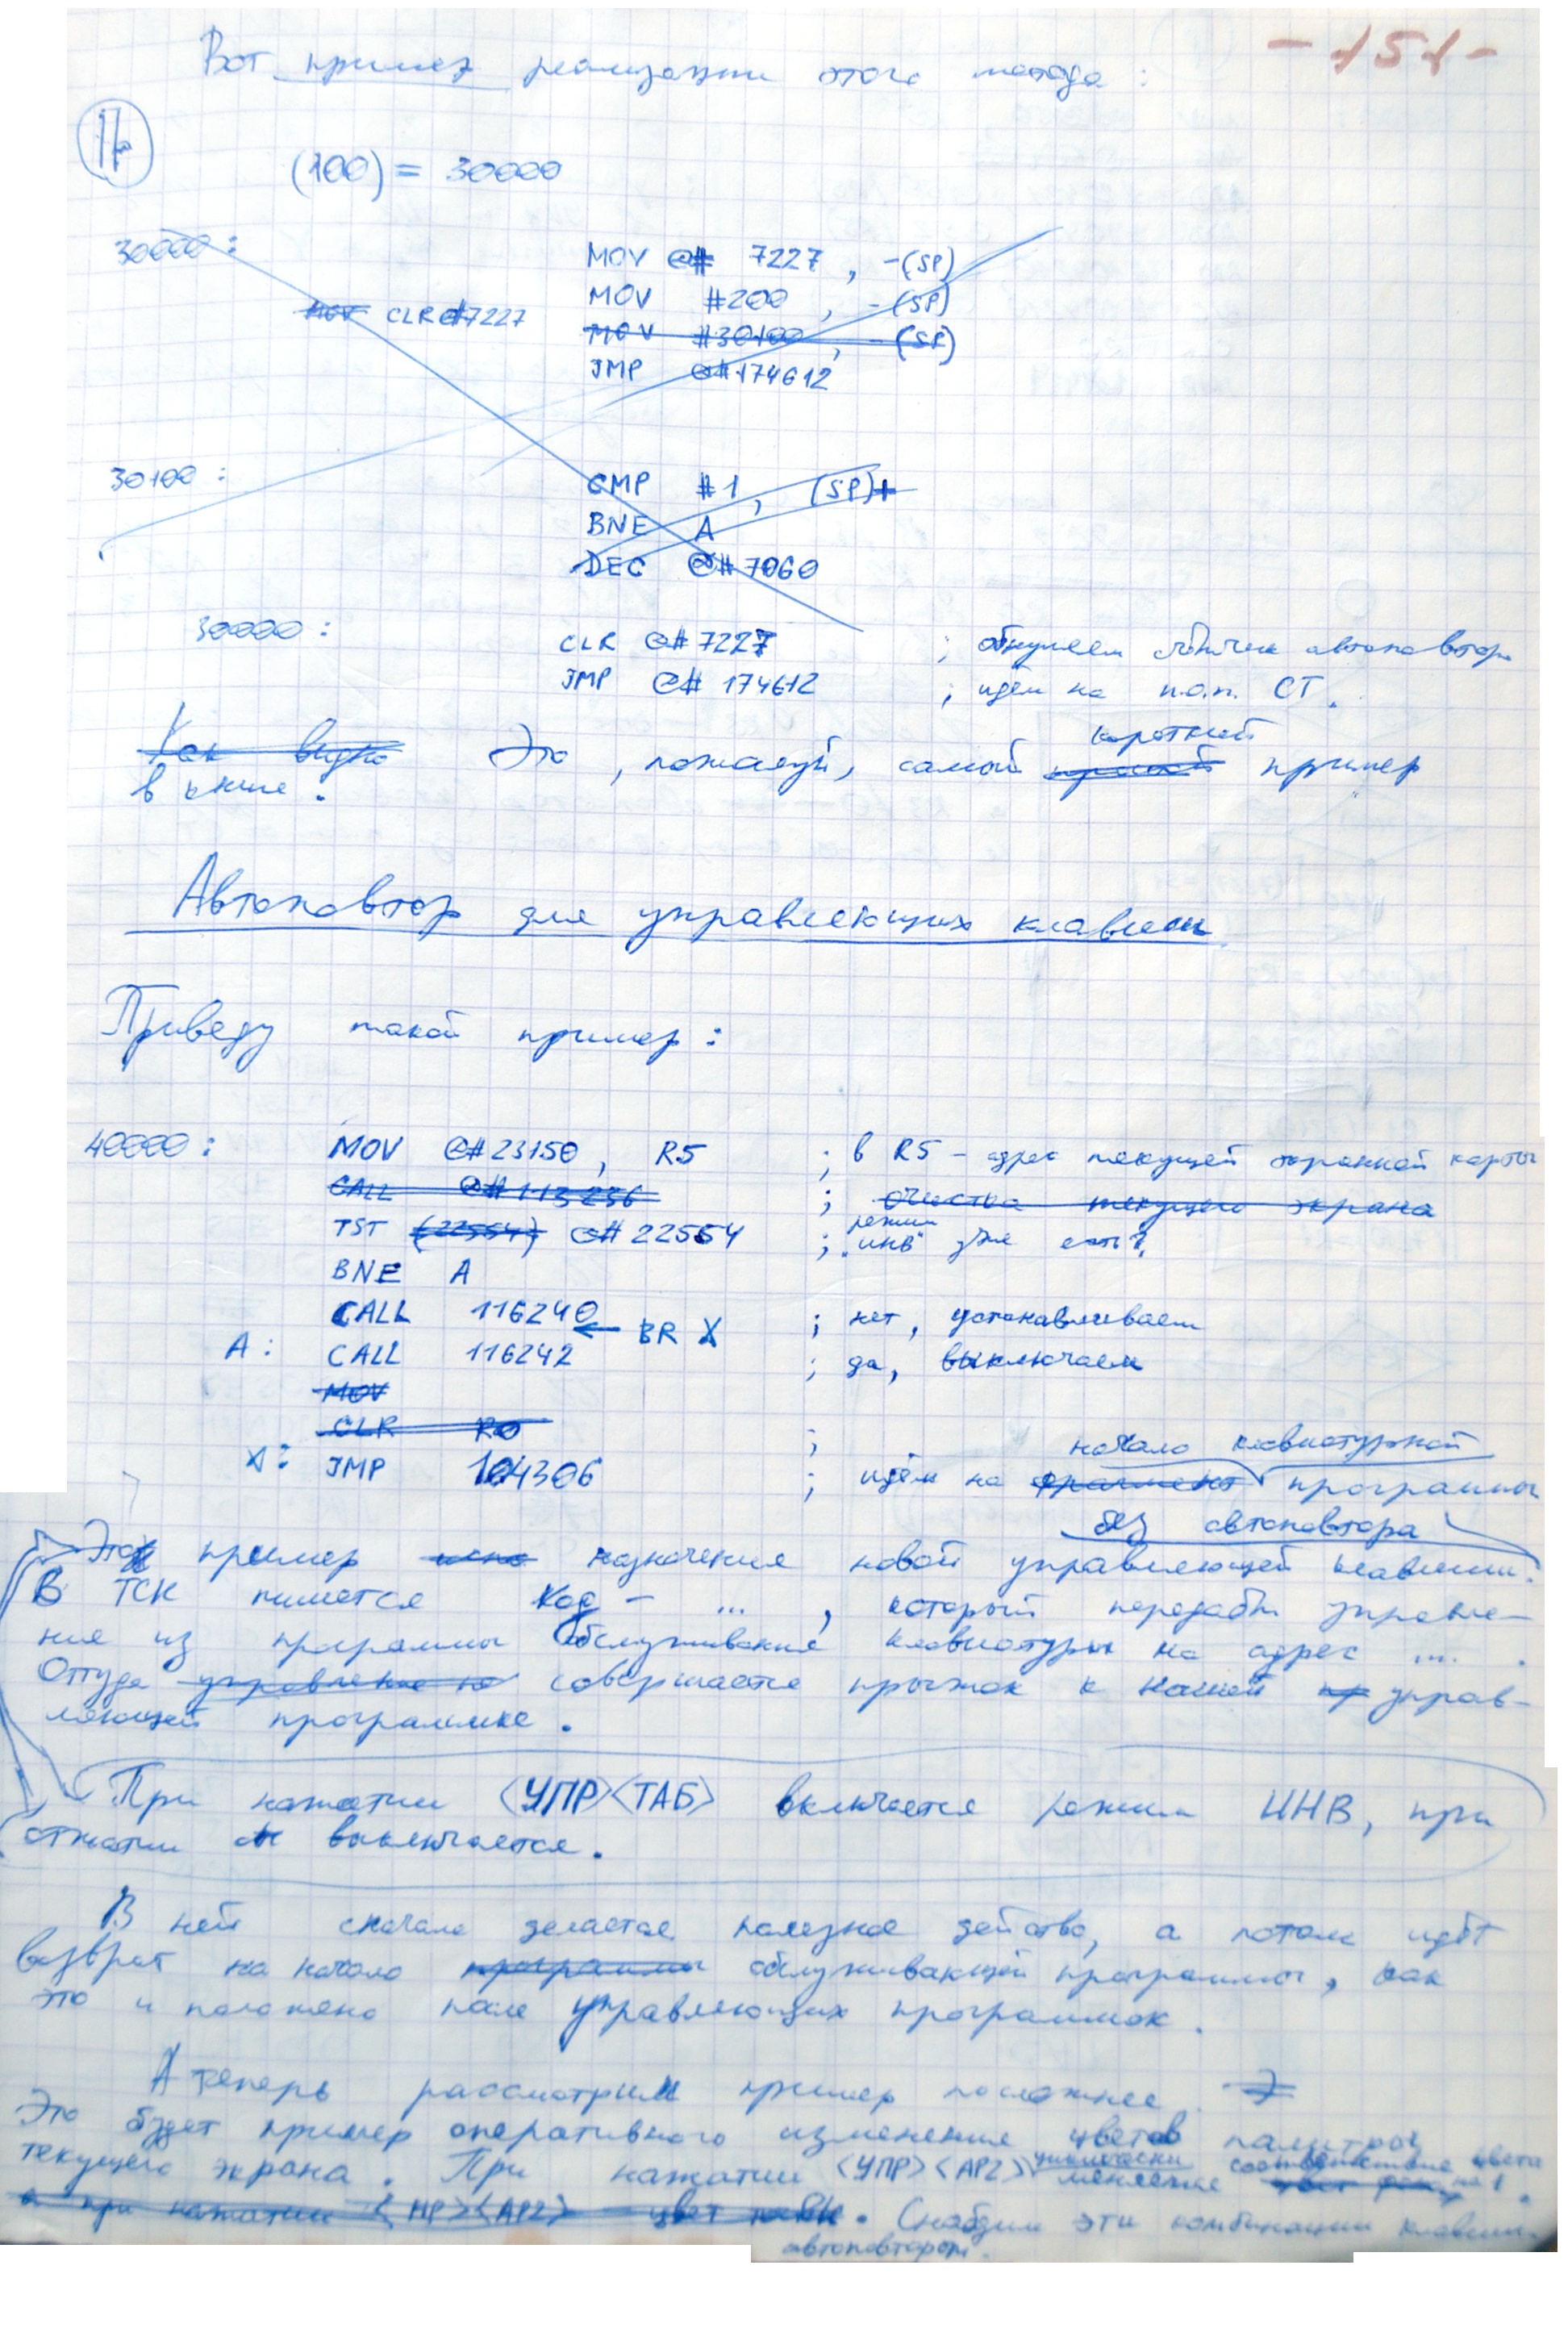 - 151 -
Вот пример реализации этого метода :
17
(100) = 30000
30000 :
MOV @# 7227 , -(SP)
MOV #200 , -(SP)
MOV CLR @#7227
MOV #30100 , -(SP)
JMP @#174612
30100 :
CMP #1 , (SP)+
BNE A
DEC @#7060
30000 : CLR @# 7227 ; обнуляем автоповтор
JMP @# 174612 ; идём на п.о.п. СТ.
короткий
Как видно Это , пожалуй, самый пример
в книге .
Автоповтор для управляющих клавиш
Приведу такой пример :
40000 : MOV @# 23150 , R5 ; в R5 - адрес текущей экранной карты
CALL @# 113236 ; очистка текущего экрана
режим
TST (22554) @# 22554 ; "ИНВ" уже есть?
BNE A
CALL 116240 ; нет, устанавливаем
← BR X
A : CALL 116242 ; да, выключаем
MOV
CLR R0 ;
начало клавиатурной
X : JMP 104306 ; идём на фрагмент программы
без автоповтора
Это пример назначения новой управляющей клавиши.
В ТСК пишется код - ... , который передаёт управле-
ние из программы обслуживания клавиатуры на адрес ... .
Оттуда управление совершается прыжок к нашей управ-
ляющей программке .
При нажатии <УПР><ТАБ> включается режим ИНВ, при
отжатии выключается.
В ней сначала делается полезное действо, а потом идёт
возврат на начало программы обслуживающей программы, как
это и положено после управляющих программок .
А теперь рассмотрим пример посложнее . Э
Это будет пример оперативного изменения цветов палитры
текущего экрана . При нажатии <УПР><АР2> циклически соответствие цвета
меняется на 1 .
а при нажатии <НР><АР2> цвет . Снабдим эти комбинации клавиш
автоповтором.